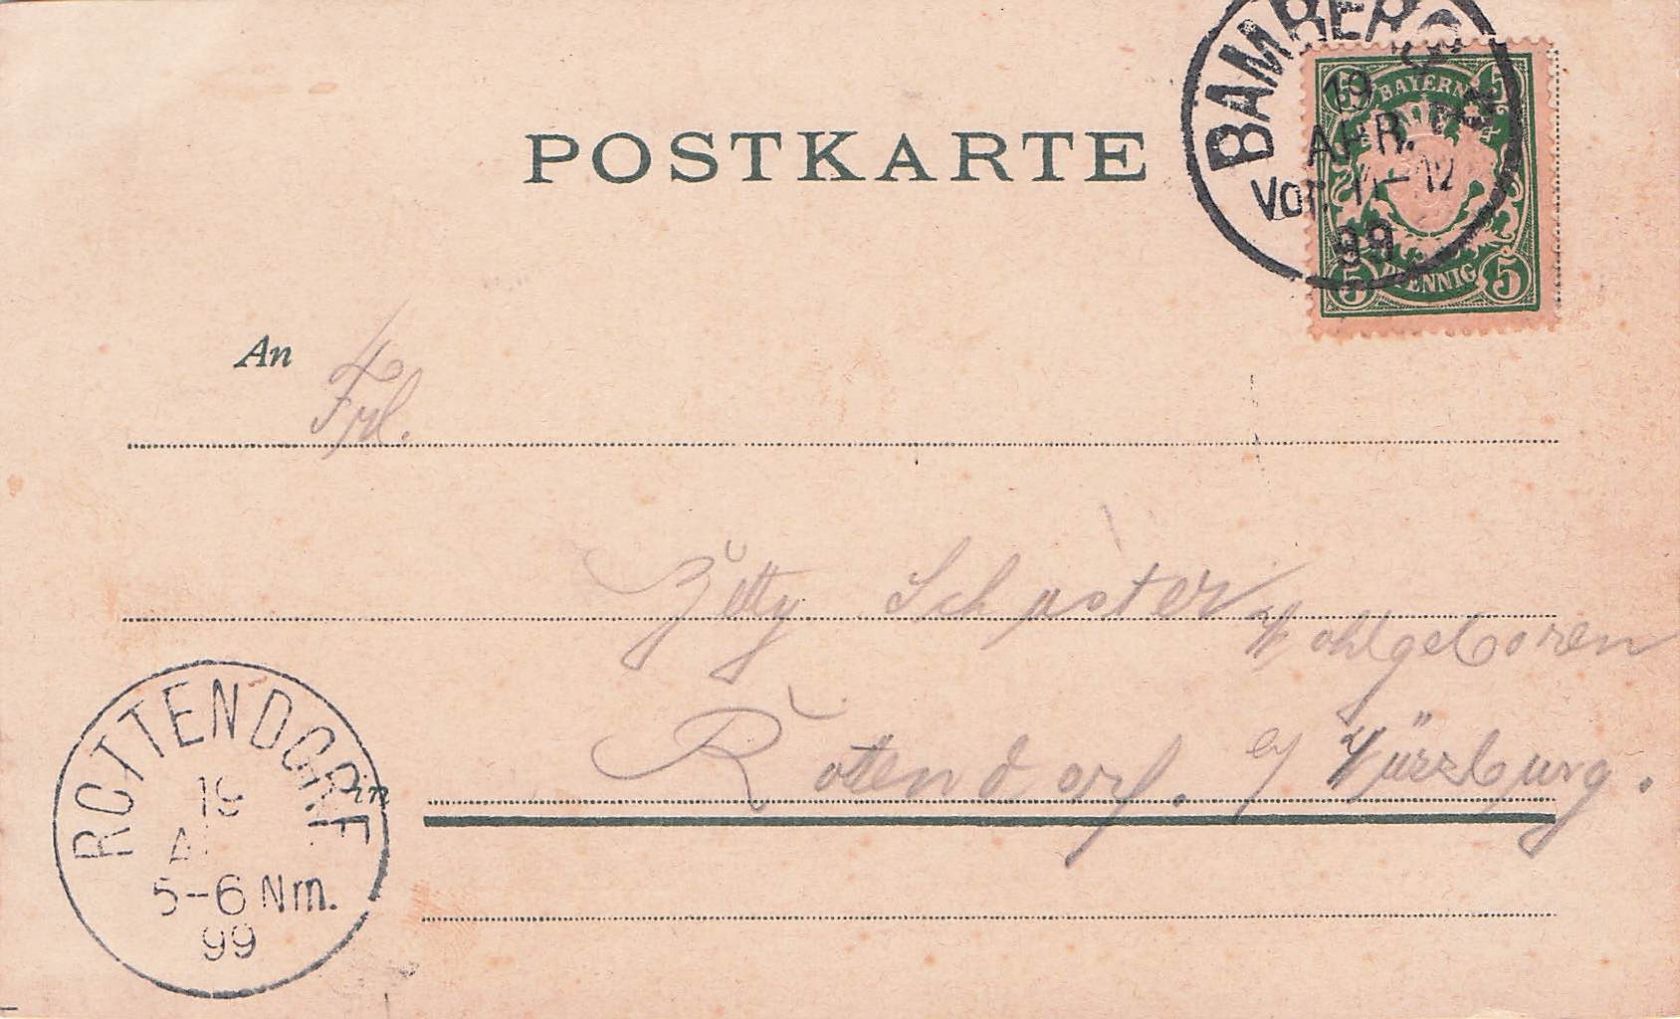 POSTKARTE
BAMBERG
19
APR.
Vor. 11-12
99
BAYERN
5 PFENNIG 5
An
Frl.
Schuster
Wohlgeboren
Rottendorf. Würzburg.
in
ROTTENDORF
19
5-6 Nm.
99